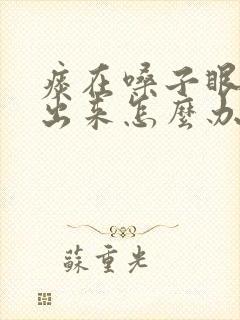 痰在嗓子眼
出来怎麽办
蘇重光